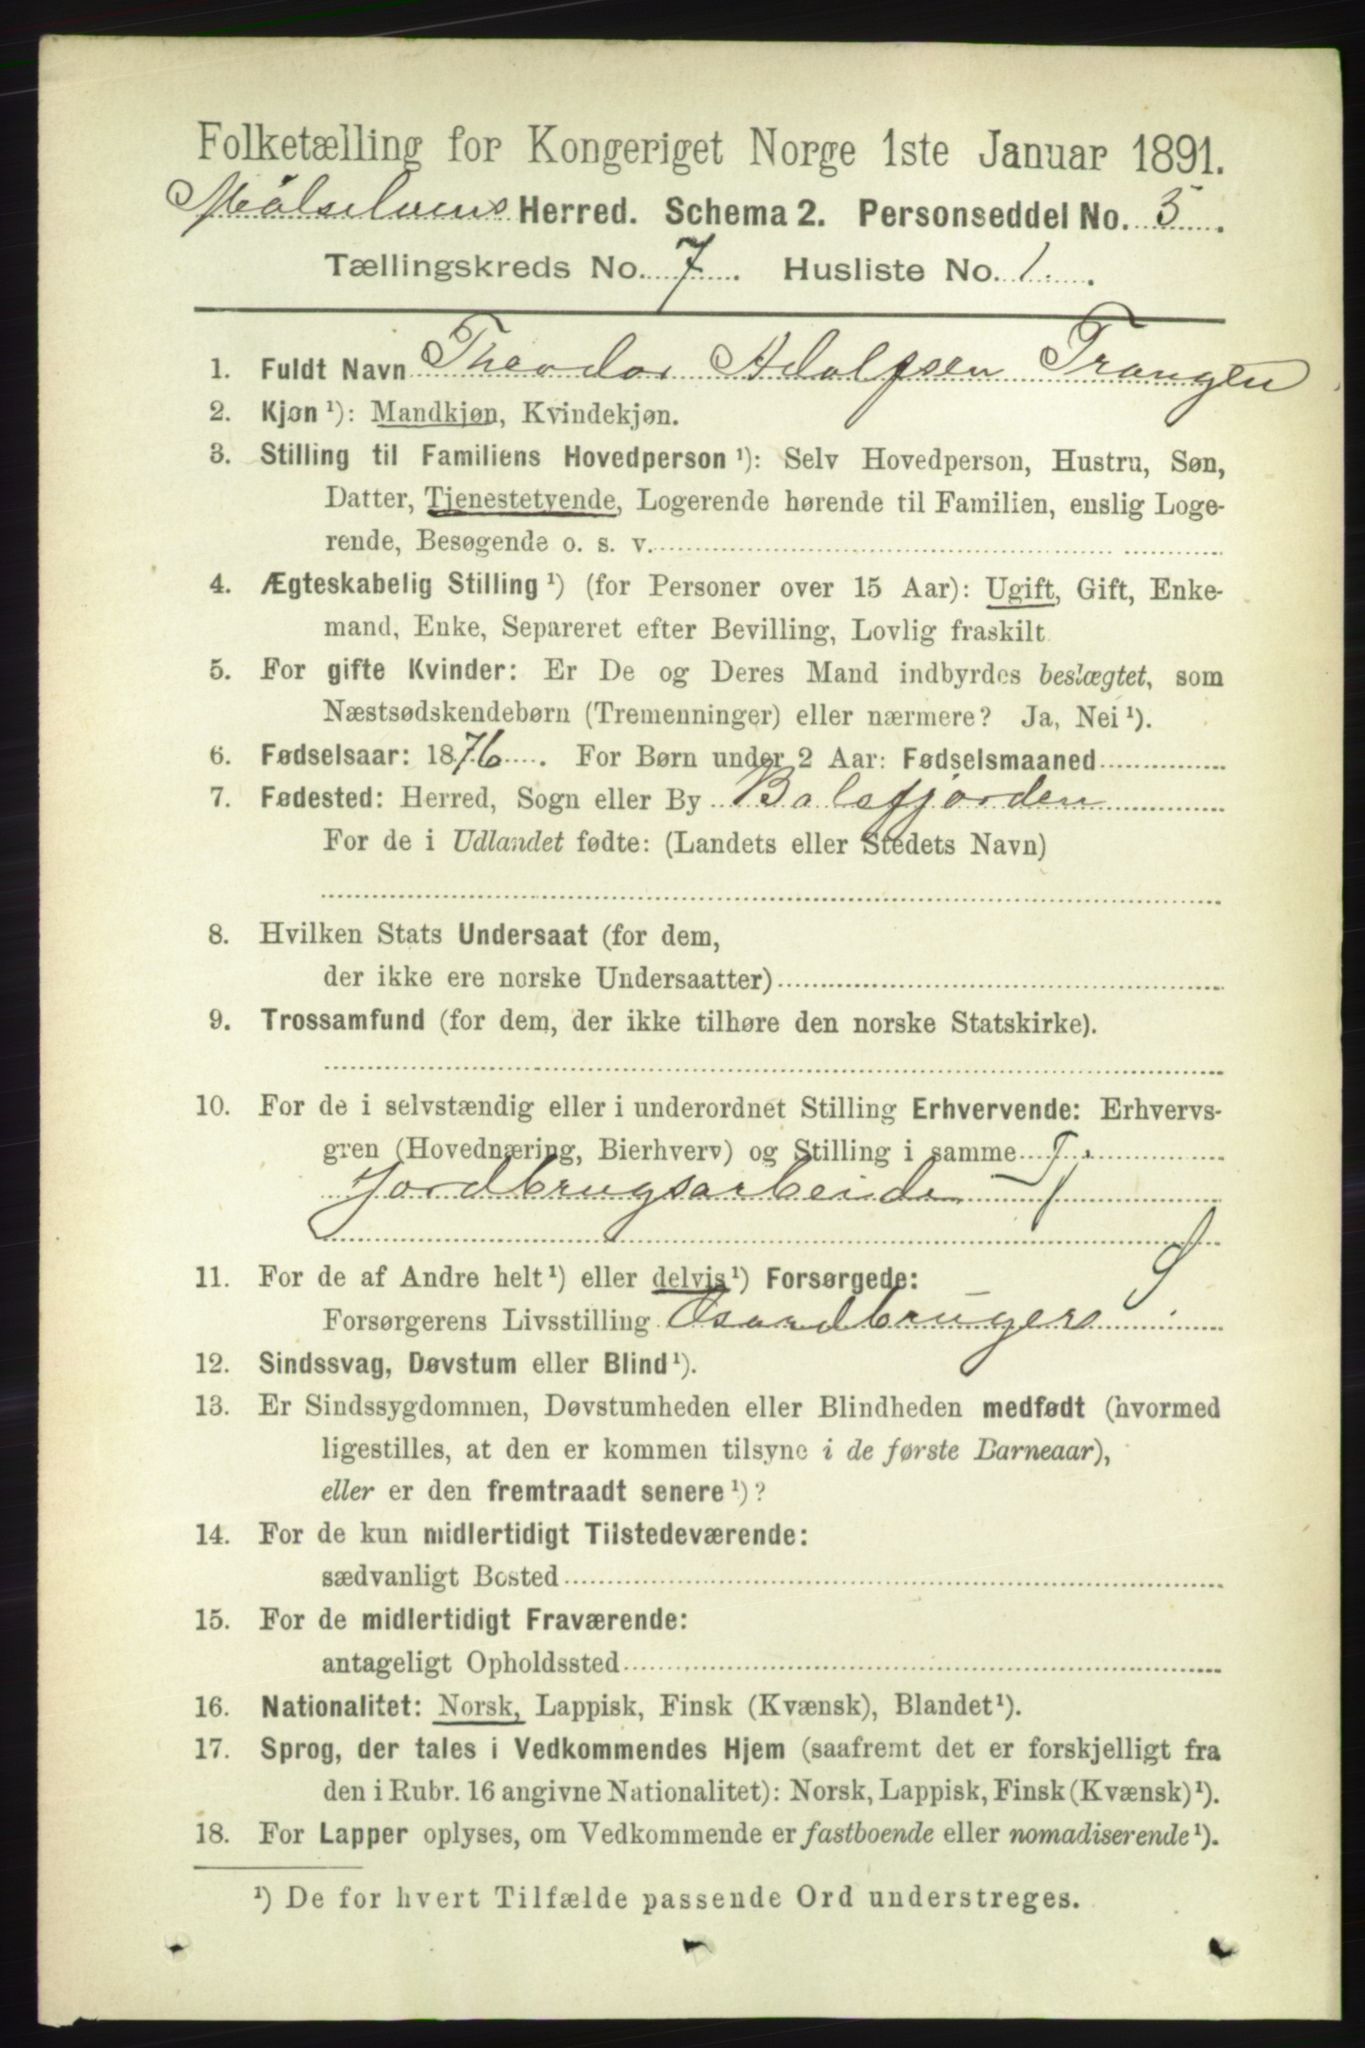 Folketælling for Kongeriget Norge 1ste Januar 1891.
Målselvens Herred. Schema 2. Personseddel No. 5.
Tællingskreds No. 7. Husliste No. 1.
1. Fuldt Navn Theodor Adolfsen Trangen
2. Kjøn ¹): Mandkjøn, Kvindekjøn.
3. Stilling til Familiens Hovedperson ¹): Selv Hovedperson, Hustru, Søn,
Datter, Tjenestetyende, Logerende hørende til Familien, enslig Loge-
rende, Besøgende o. s. v.
4. Ægteskabelig Stilling ¹) (for Personer over 15 Aar): Ugift, Gift, Enke-
mand, Enke, Separeret efter Bevilling, Lovlig fraskilt
5. For gifte Kvinder: Er De og Deres Mand indbyrdes beslægtet, som
Næstsødskendebørn (Tremenninger) eller nærmere? Ja, Nei ¹).
6. Fødselsaar: 1876. For Børn under 2 Aar: Fødselsmaaned
7. Fødested: Herred, Sogn eller By Balsfjorden
For de i Udlandet fødte: (Landets eller Stedets Navn)
8. Hvilken Stats Undersaat (for dem,
der ikke ere norske Undersaatter)
9. Trossamfund (for dem, der ikke tilhøre den norske Statskirke).
10. For de i selvstændig eller i underordnet Stilling Erhvervende: Erhvervs-
gren (Hovednæring, Bierhverv) og Stilling i samme
Jordbrugsarbeide
11. For de af Andre helt ¹) eller delvis ¹) Forsørgede:
Forsørgerens Livsstilling Gaardbrugers
12. Sindssvag, Døvstum eller Blind ¹).
13. Er Sindssygdommen, Døvstumheden eller Blindheden medfødt (hvormed
ligestilles, at den er kommen tilsyne i de første Barneaar),
eller er den fremtraadt senere ¹)?
14. For de kun midlertidigt Tilstedeværende:
sædvanligt Bosted
15. For de midlertidigt Fraværende:
antageligt Opholdssted
16. Nationalitet: Norsk, Lappisk, Finsk (Kvænsk), Blandet ¹).
17. Sprog, der tales i Vedkommendes Hjem (saafremt det er forskjelligt fra
den i Rubr. 16 angivne Nationalitet): Norsk, Lappisk, Finsk (Kvænsk) ¹).
18. For Lapper oplyses, om Vedkommende er fastboende eller nomadiserende ¹).
¹) De for hvert Tilfælde passende Ord understreges.